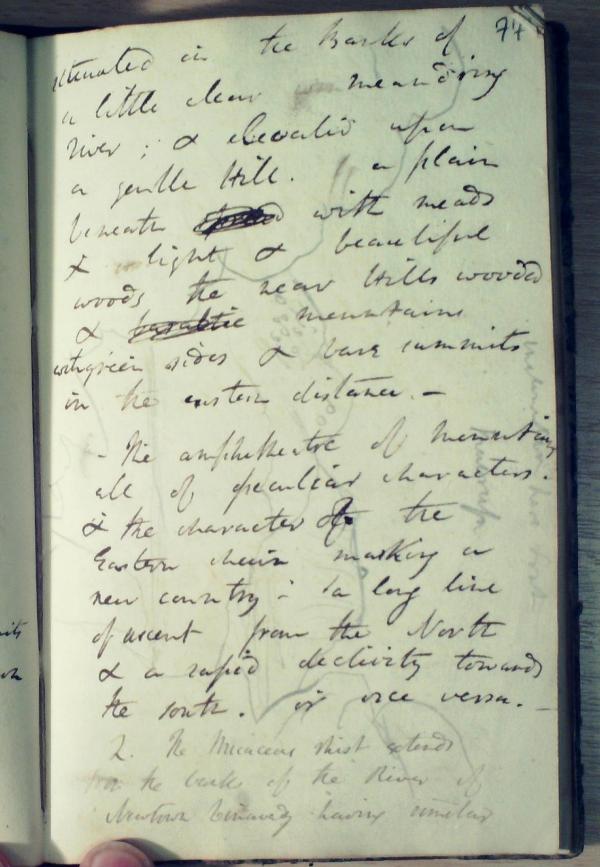 97
situated on the Banks of
a little clear meandring
river; & elevated upon
a gentle Hill. a plain
beneath with meads
& light & beautiful
woods the near Hills wooded
& basaltic mountains
with green sides & bare summits
in the eastern distance. —
- The amphitheatre of mountains
all of peculiar characters.
& the character of the
Eastern chain marking a
new country - a long line
of ascent from the North
& a rapid declivity towards
the south. or vice versa. —
2. The Micaceous shist extends
from the banks of the River of
Newtown limavady having similar